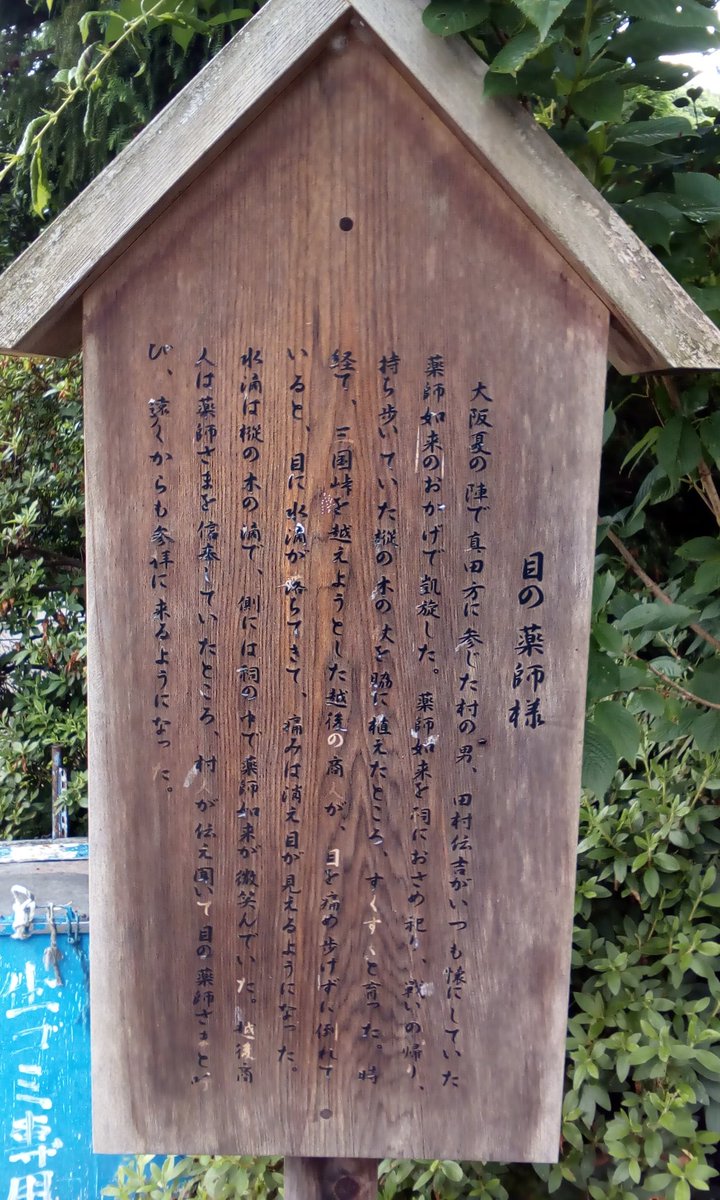 目の薬師様
大阪夏の陣で真田方に参じた村の男、田村伝吉がいつも懐にしていた
薬師如来のおかげで凱旋した。薬師如来を祠におさめ祀り、戦いの帰り、
持ち歩いていた樅の木の杖を脇に植えたところ、すくすくと育った。時
経て、三国峠を越えようとした越後の商人が、目を痛め歩けずに倒れて
いると、目に水滴が落ちてきて、痛みは消え目が見えるようになった。
水滴は樅の木の滴で、側には祠の中で薬師如来が微笑んでいた。越後商
人は薬師さまを信奉していたところ、村人が伝え聞いて目の薬師さまと呼
び、遠くからも参拝に来るようになった。
ゴミ専用